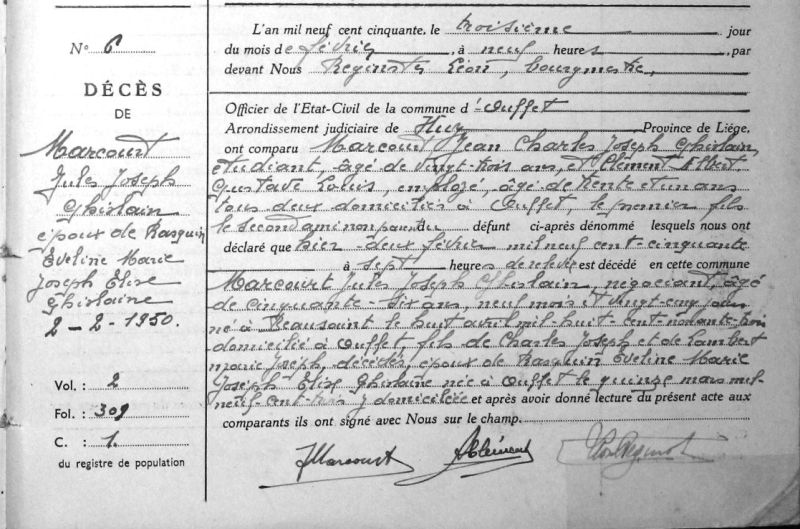 N° 6
DÉCÈS
DE
Marcourt
Jules Joseph
Ghislain
époux de Rasquin
Eveline Marie
Joseph Elise
Ghislaine
2-2-1950.
Vol. : 2
Fol. : 309
C. : 1.
du registre de population
L'an mil neuf cent cinquante, le troisième jour
du mois de février, à neuf heures, par
devant Nous Reginster Léon, bourgmestre,
Officier de l'Etat-Civil de la commune d'Ouffet
Arrondissement judiciaire de Huy Province de Liége,
ont comparu Marcourt Jean Charles Joseph Ghislain,
étudiant, âgé de vingt-trois ans, et Clément Albert
Gustave Louis, employé, âgé de trente et un ans
tous deux domiciliés à Ouffet, le premier fils
le second ami non parent du défunt ci-après dénommé lesquels nous ont
déclaré que hier deux février mil neuf cent cinquante
à sept heures de relevée est décédé en cette commune
Marcourt Jules Joseph Ghislain, négociant, âgé
de cinquante-six ans, neuf mois et vingt-cinq jours
né à Beausaint le huit avril mil huit-cent nonante-trois
domicilié à Ouffet, fils de Charles Joseph et de Lambert
Marie Joseph, décédés, époux de Rasquin Eveline Marie
Joseph Elise Ghislaine née à Ouffet le quinze mars mil-
neuf-cent-trois y domiciliée et après avoir donné lecture du présent acte aux
comparants ils ont signé avec Nous sur le champ.
JMarcourt AClément